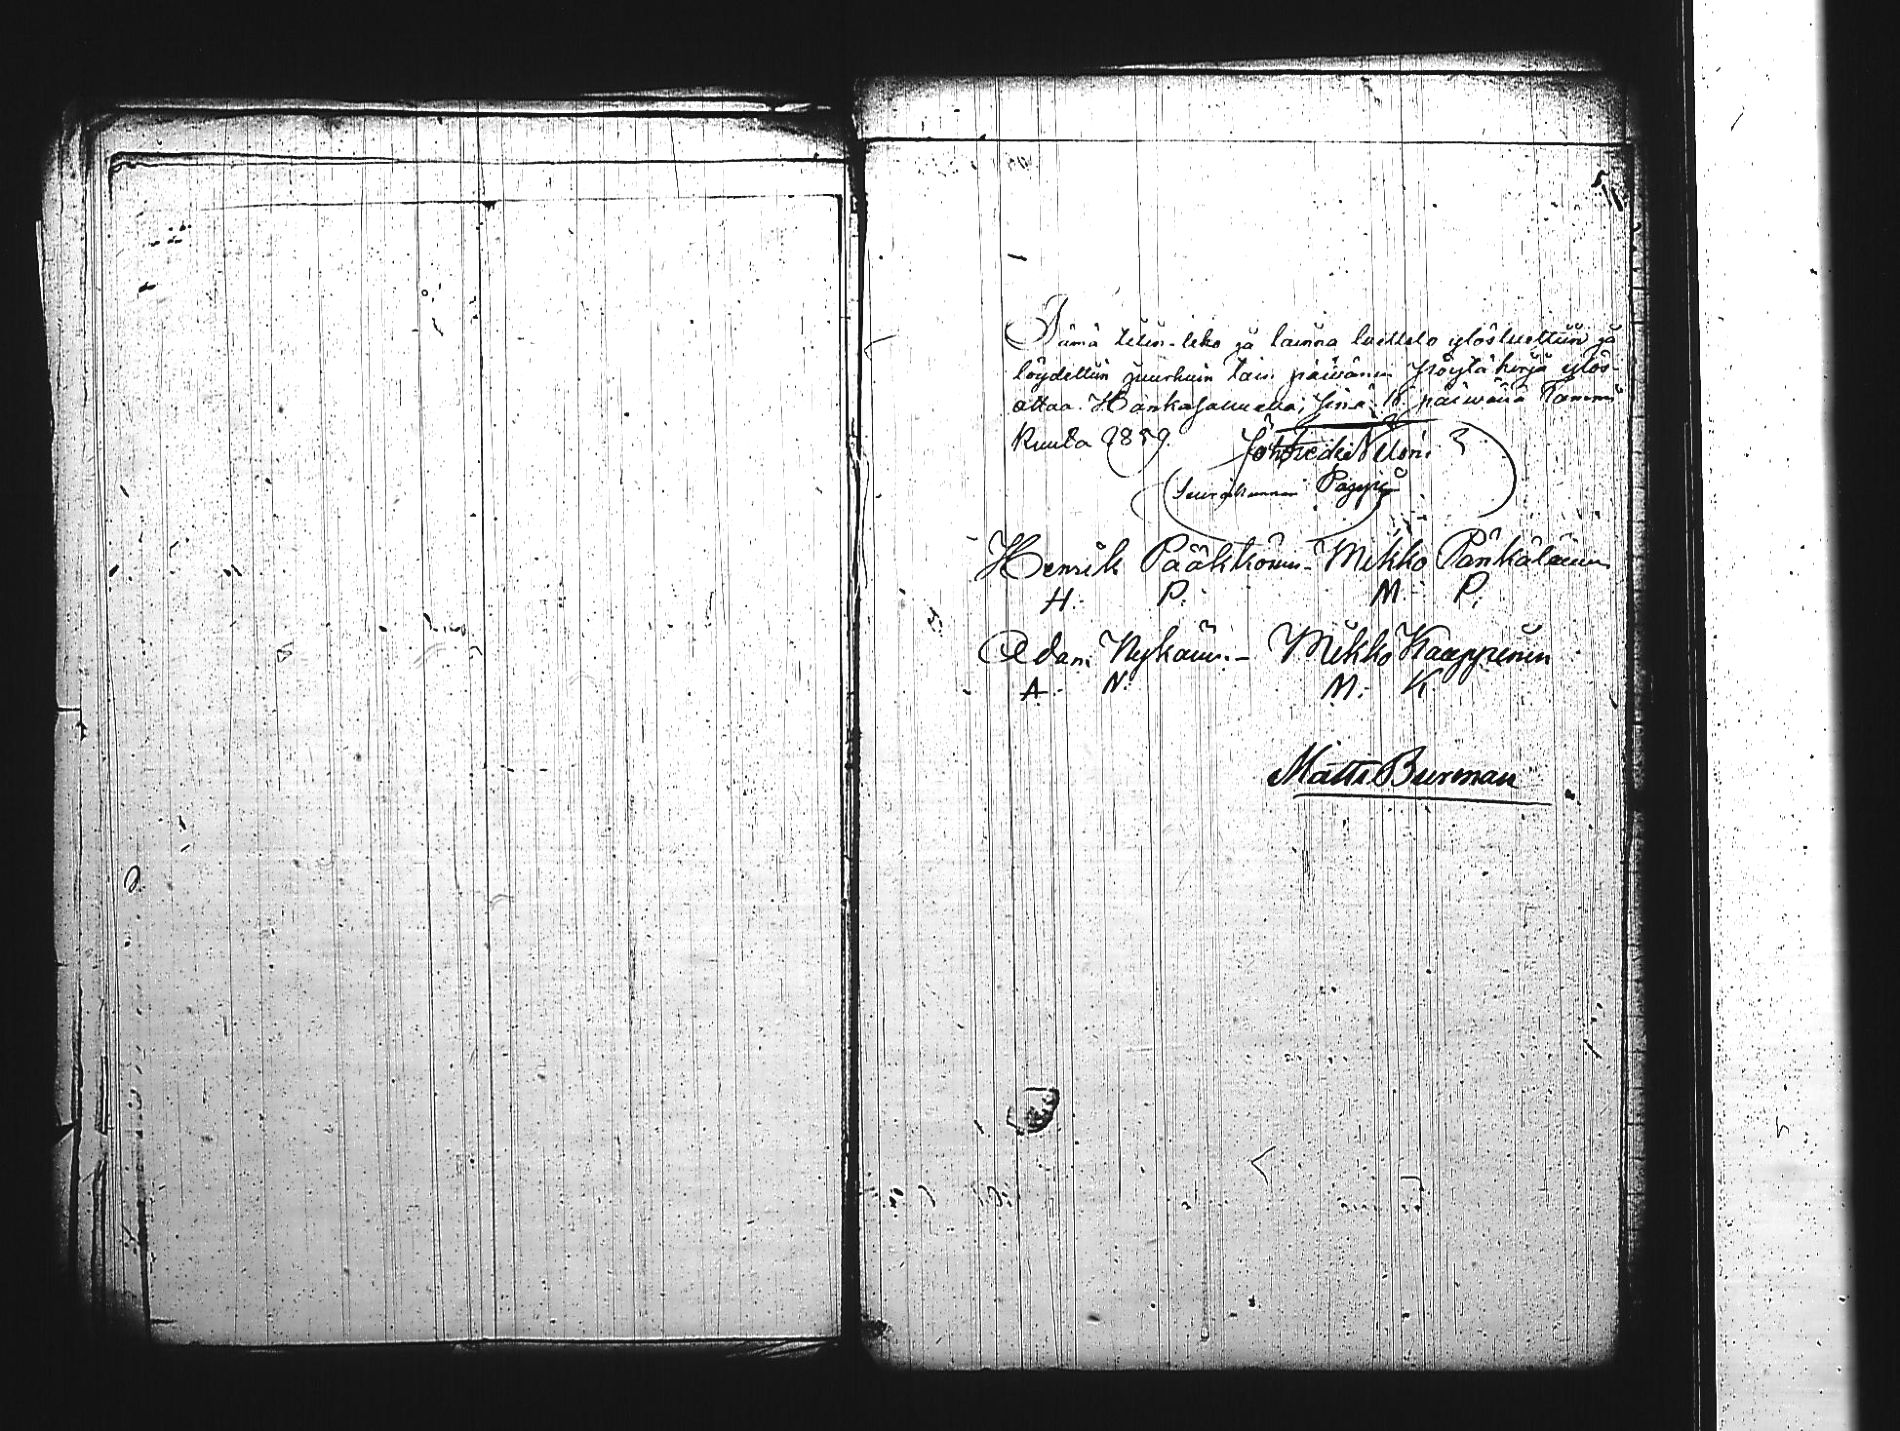 Tämä tilin-teko ja lainna luettelo ylösluettiin ja
löydettiin juurkuin tain päiwänen Pöytäkirja ylös-
ottaa. Hankasalmella, sinä 16 päiwänä Tammi
Kuuta 1859.
Seurakunnan Pappi
Henrik Pääkkönen - Mikko Pänkäläinen
H. P. M. P.
Adam Nykänen - Mikko Kaappinen
A. N. M. K.
Matts Burman